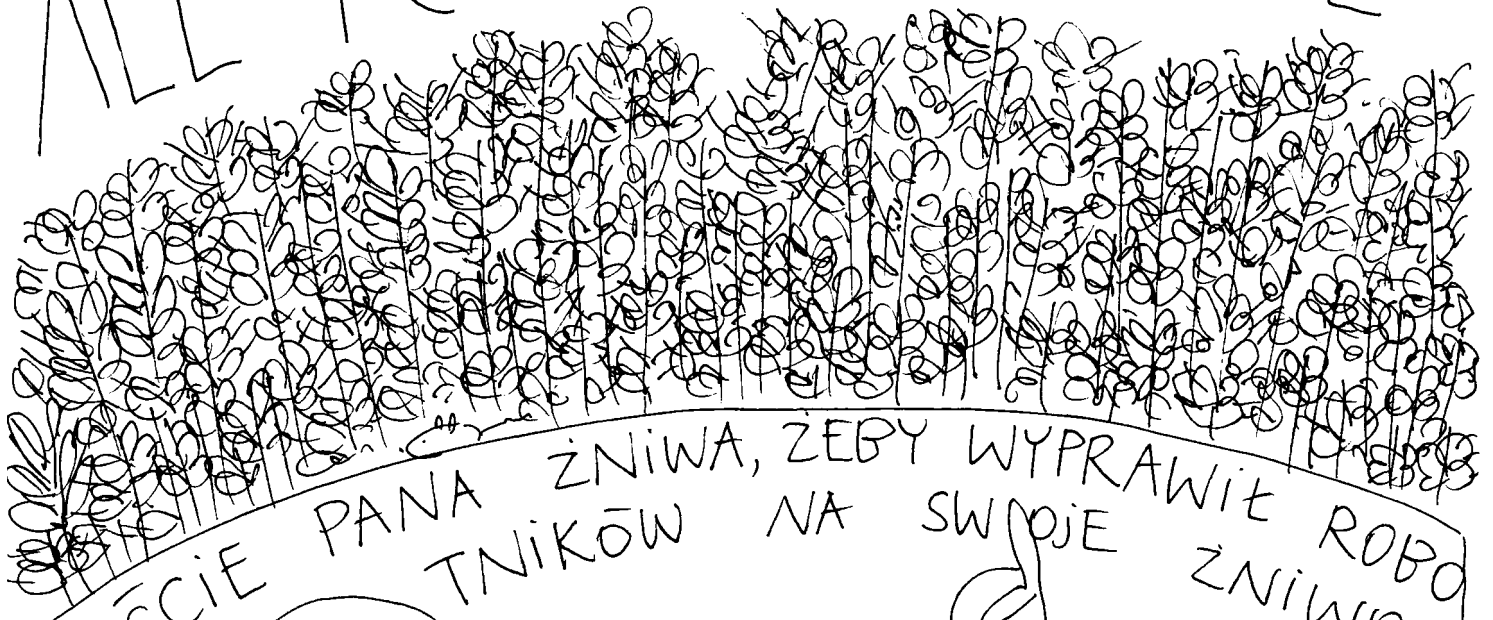 ŚCiE PANA ŻNiWA, ŻEBY WYPRAWiŁ ROBO
TNiKÓW NA SWOJE ŻNiWO